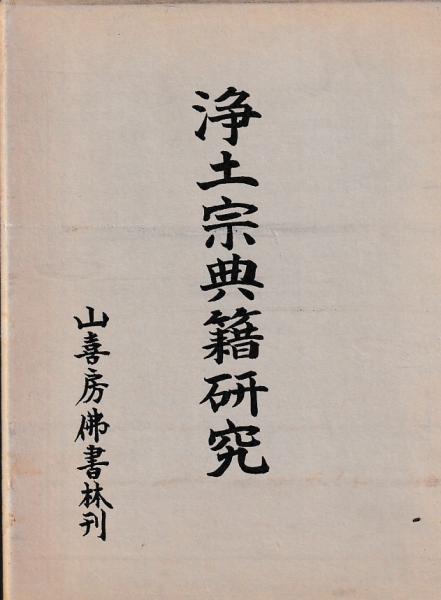 浄土宗典籍研究
山喜房佛書林刊